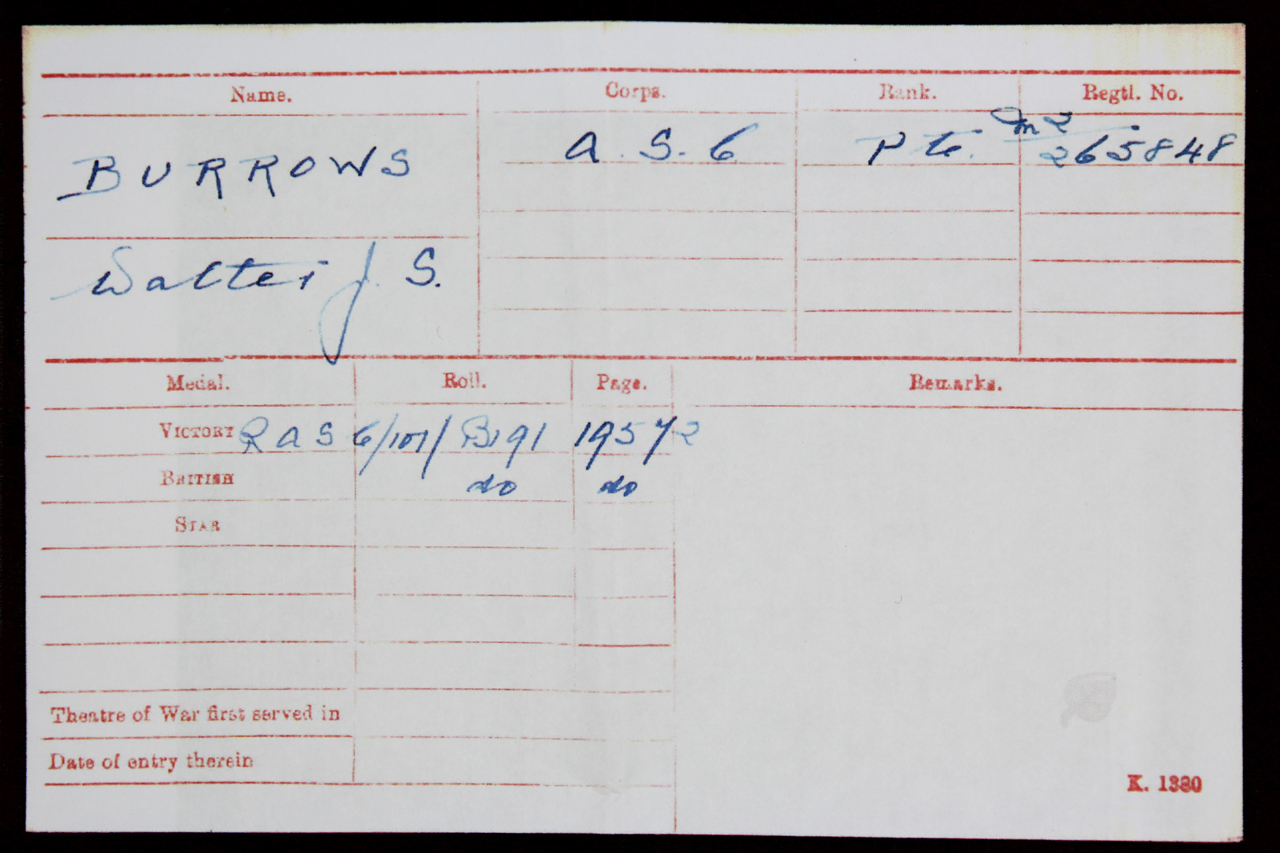 Name. Corps. Rank. Regtl. No.
BURROWS A. S. C Pte. M2/265848
Walter J. S.
Medal. Roll. Page. Remarks.
VICTORY RASC/101/B191 19572
BRITISH do do
STAR
Theatre of War first served in
Date of entry therein
K. 1380